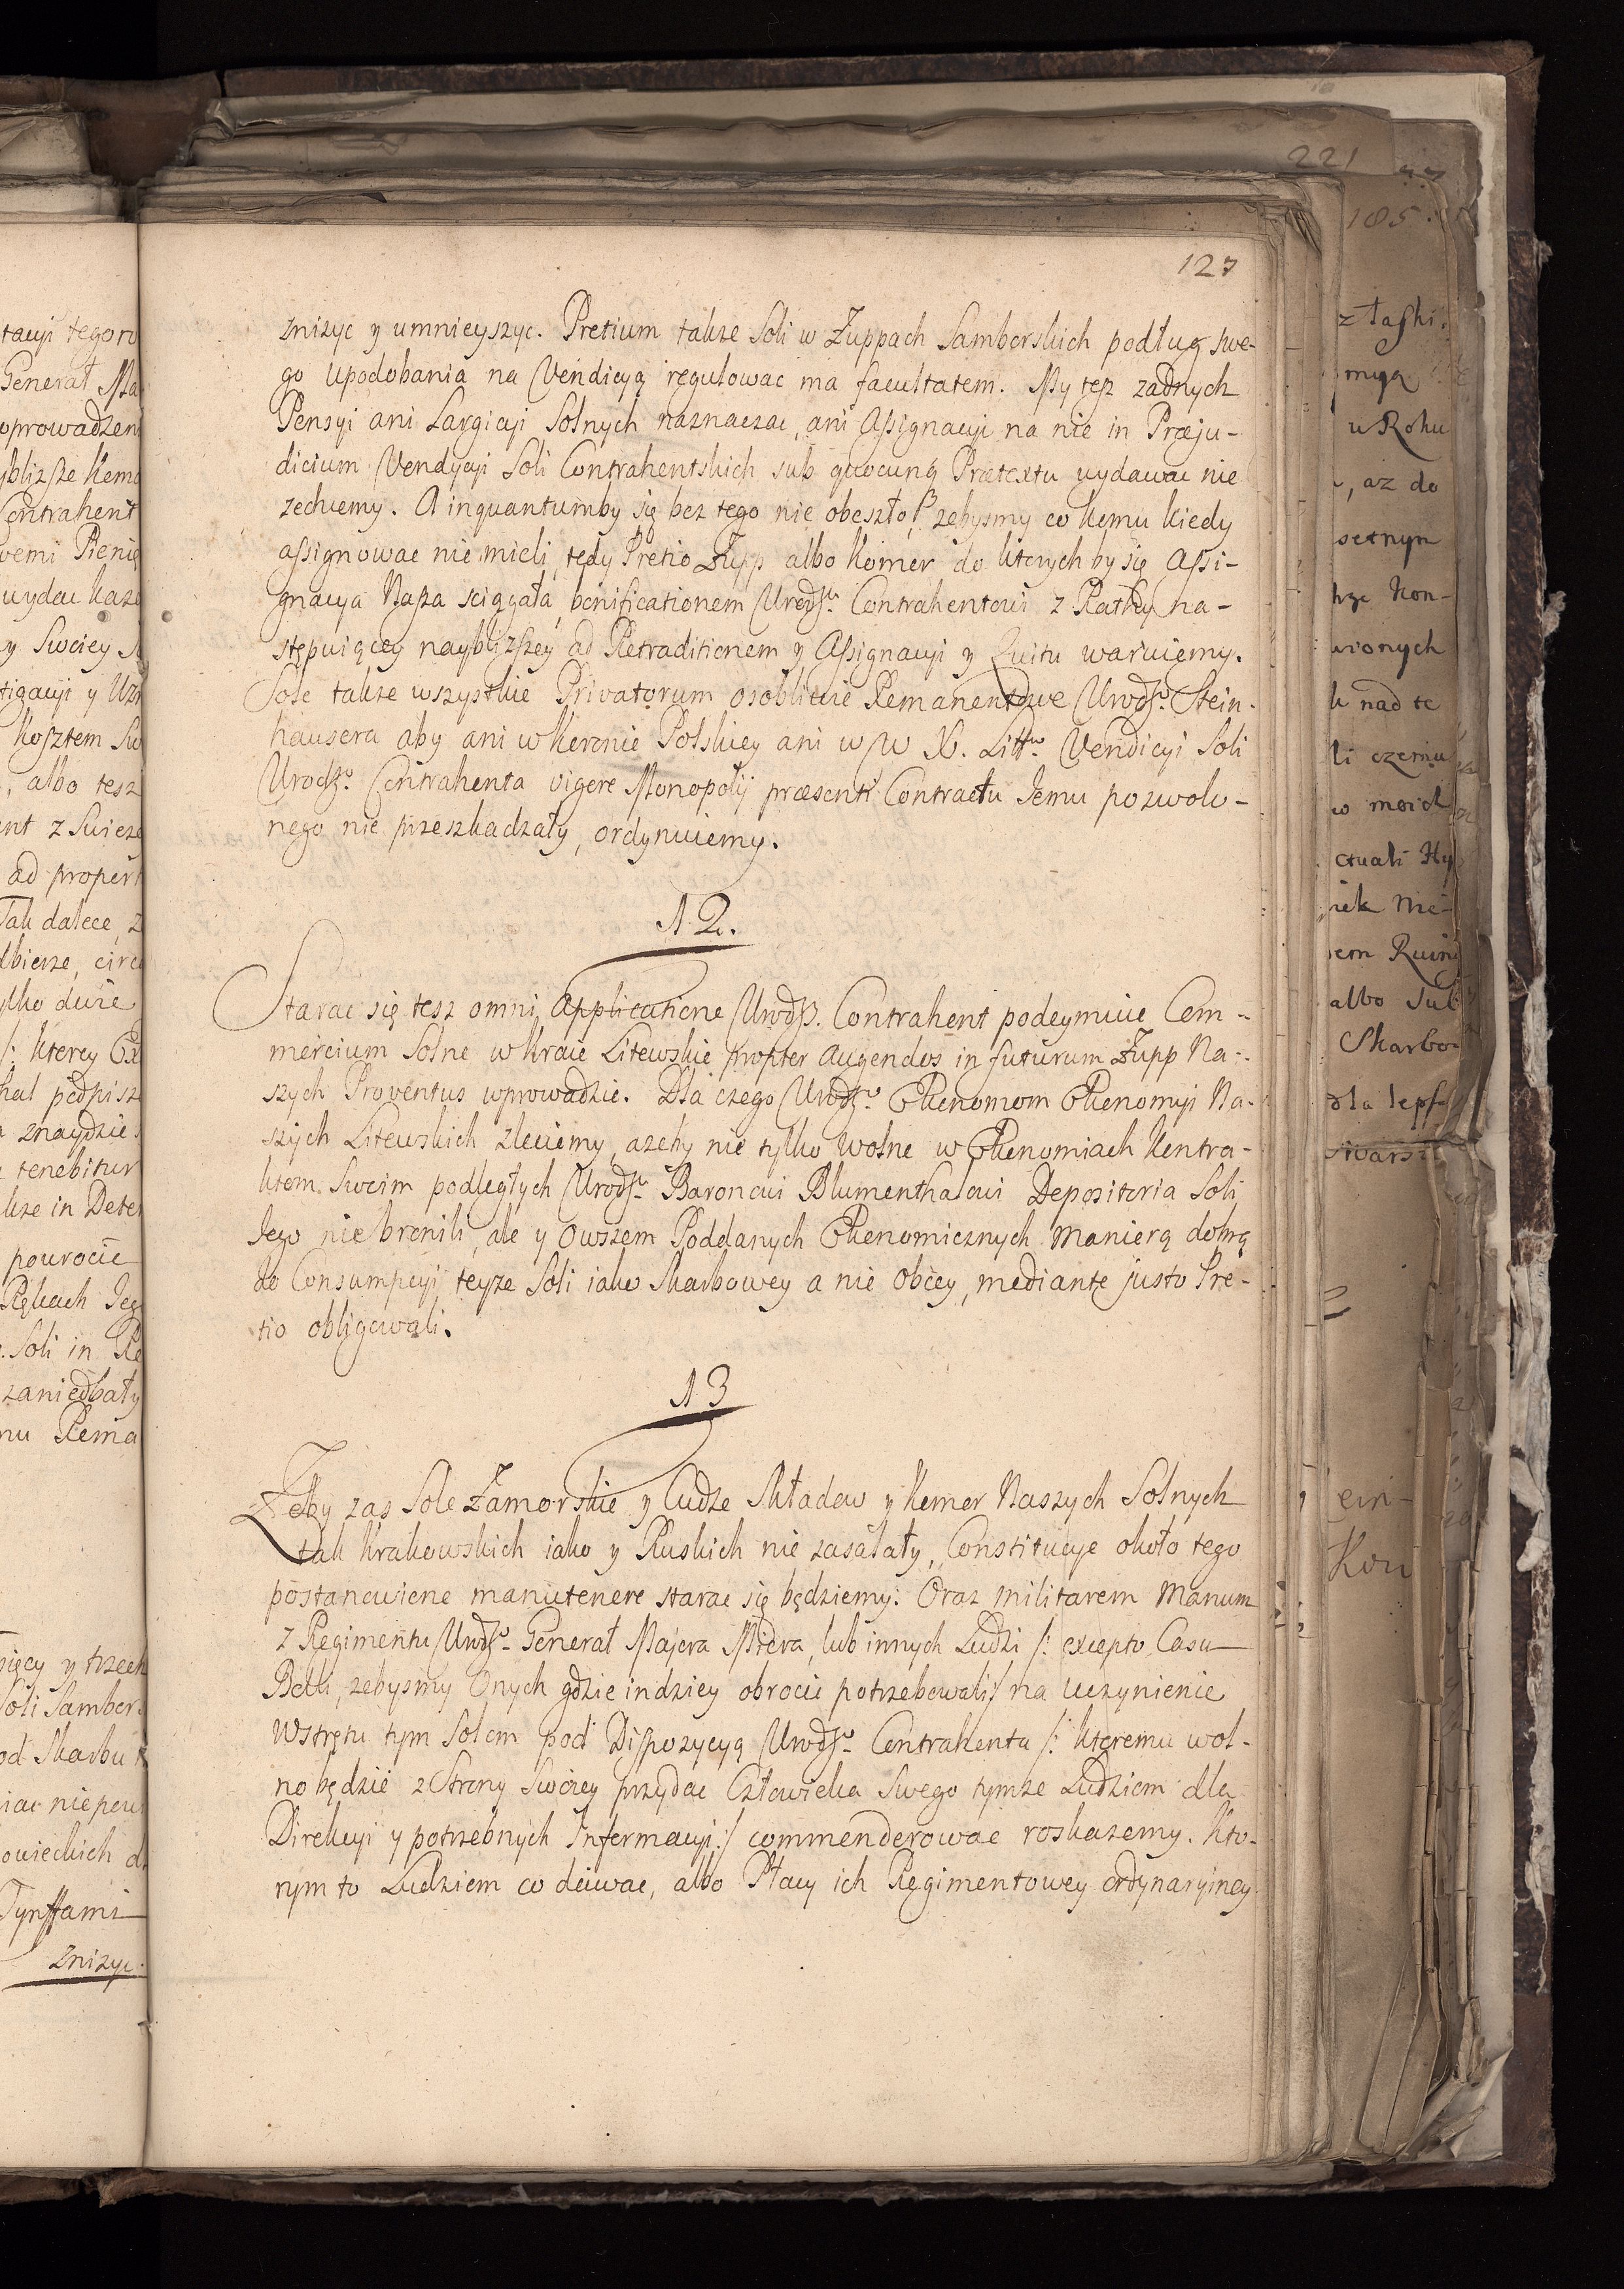 127
znizyc y umnieyszyc. Pretium takze Soli w Zuppach Samborskich podług swe-
go upodobania na Vendicyą regulowac ma facultatem. My tesz zadnych
Pensyi ani Largicyi Solnych naznaczac, ani Assignacyi na nie in Præju-
dicium Vendycyi Soli Contrahentskich sub quocunq Prætextu wydawac nie
zechcemy. A inquantumby się bez tego nie obeszło, zebysmy co komu kiedy
assignowac nie mieli, tedy Pretio Zupp albo Komor do ktorych by się Assi-
gnacya Nasza sciągała, bonificationem Urodzo. Contrahentowi z Rathy na-
stępuiącey naybliższey ad Retraditionem y Assignacyi y Qvitu waruiemy.
Sole takze wszystkie Privatorum osobliwie Remanentowe Urodzo. Stein-
hausera aby ani w Koronie Polskiey ani w W. X. Litto. Vendicyi Soli
Urodzo. Contrahenta vigore Monopolij præsenti Contractu Jemu pozwolo-
nego nie przeszkadzały, ordynuiemy.
12.
Starac się tesz omni Applicatione Urodz. Contrahent podeymuie Com-
mercium Solne w Kraie Litewskie propter augendos in futurum Zupp Na-
szych Proventus wprowadzic. Dla czego Urodzo. Okonomom Okonomyi Na-
szych Litewskich zleciemy, azeby nie tylko wolne w Okonomiach Kontra-
ktom Swoim podległych Urodzo. Baronowi Blumenthalowi Depositoria Soli
Jego nie bronili, ale y owszem Poddanych Okonomicznych manierą dobrą
do Consumpcyi teyze Soli iako Skarbowey a nie Obcey, mediante justo Pre-
tio obligowali.
13
Zeby zas Sole Zamorskie y Cudze Składow y Komor Naszych Solnych
tak Krakowskich iako y Ruskich nie zasalały, Constitucye około tego
postanowione manutenere starac się będziemy: Oraz militarem Manum
z Regimentu Urodzo. General Majora Midera, lub innych Ludzi /: excepto Casu
Belli, zebysmy Onych gdzie indziey obrocic potrzebowali:/ na uczynienie
Wstrętu tym Solom pod Dispozycyą Urodzo. Contrahenta /: ktoremu wol-
no będzie z Strony Swoiey przydac Człowieka Swego tymze Ludziom dla
Direkcyi y potrzebnych Informacyi:/ commenderowac roskazemy. Kto-
rym to Ludziom co dciwac, albo Płacy ich Regimentowey ordynaryiney